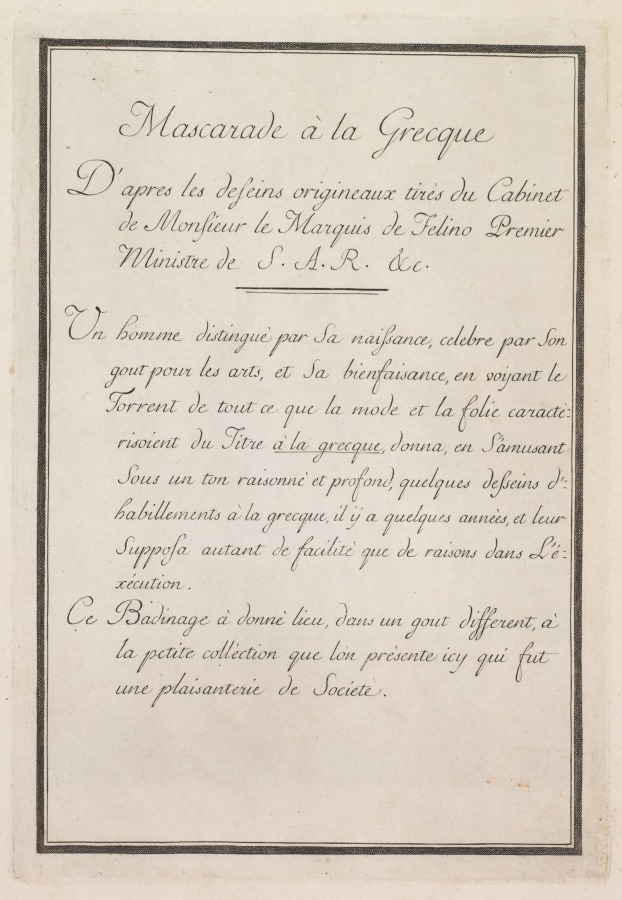 Mascarade à la Grecque
D'apres les deſseins origineaux tirès du Cabinet
de Monſieur le Marquis de Felino Premier
Ministre de S. A. R. &c.
Un homme distinguè par Sa naiſsance, celebre par Son
gout pour les arts, et Sa bienfaisance, en voijant le
Torrent de tout ce que la mode et la folie caractè=
risoient du Titre à la grecque, donna, en S'amusant
Sous un ton raisonnè et profond, quelques deſseins d'=
habillements à la grecque, il ÿ a quelques annèes, et leur
Suppoſa autant de facilitè que de raisons dans L'é=
xécution.
Ce Badinage à donnè lieu, dans un gout different, à
la petite collèction que lón prèsente icy qui fut
une plaisanterie de Societe.